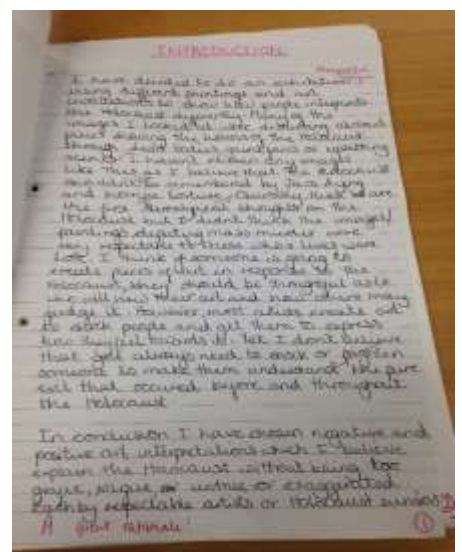 INTRODUCTION
I have decided to do an exhibition
using different paintings and art
installations to show how people interpret
the Holocaust differently. Many of the
images I looked at were
pieces showing the horrors of the Holocaust
through dead bodies or upsetting
scenes. I haven't chosen any images
like this as I believe that the Holocaust
shouldn't be remembered by Jews dying
and horrific torture. Obviously these are
the first thoughts on the
Holocaust but I didn't think the images/
paintings depicting mass murder were
very respectable to those who's lives were
lost. I think if someone is going to
create pieces of art in response to the
Holocaust, they should be thoughtful
we will view their art and how others may
judge it. However, most artists create art
to shock people and get them to express
how they feel towards it. Yet I don't believe
that you always need to shock or frighten
someone to make them understand the pure
evil that occured before and throughout
the Holocaust
In conclusion I have chosen negative and
positive art interpretations which I believe
explain the Holocaust without being too
or exaggerated
by respectable artists or Holocaust survivors
A great rationale!